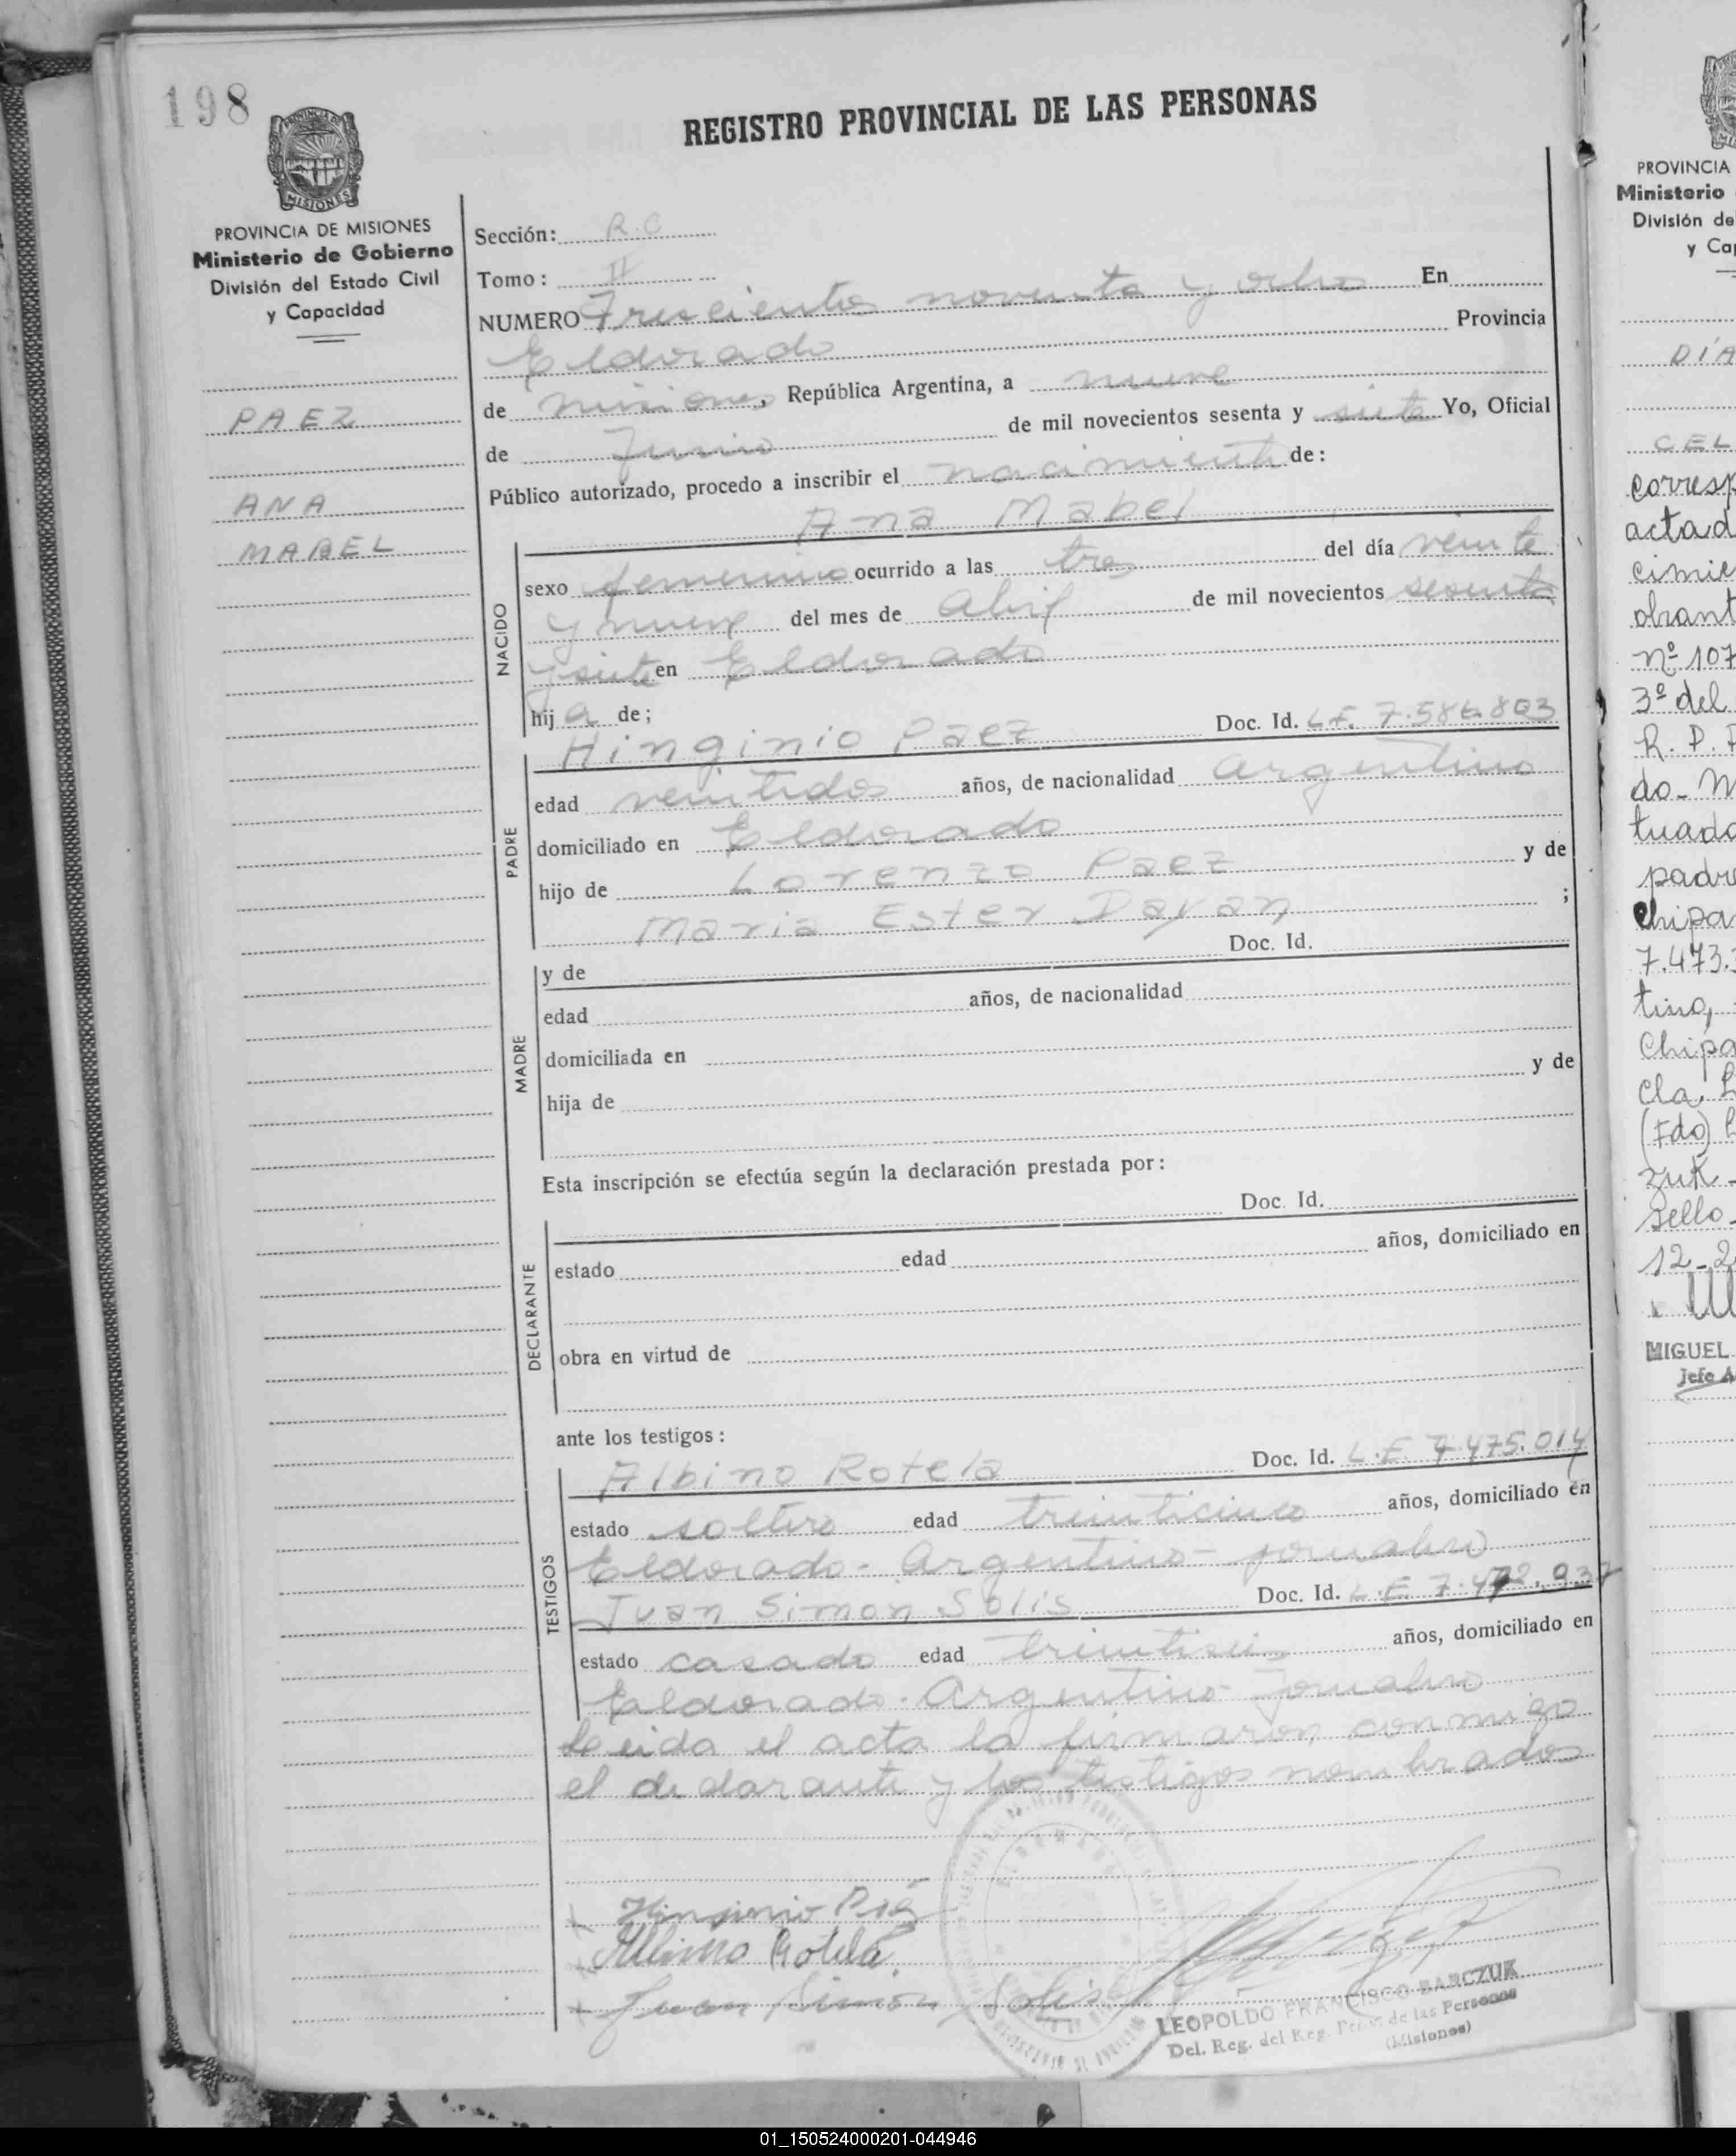 198
REGISTRO PROVINCIAL DE LAS PERSONAS
PROVINCIA DE MISIONES
Ministerio de Gobierno
División del Estado Civil
y Capacidad
PAEZ
ANA
MABEL
Sección: R.C
Tomo: II
NUMERO Trescientos noventa y ocho En
Eldorado Provincia
de Misiones, República Argentina, a nueve
de Junio de mil novecientos sesenta y siete Yo, Oficial
Público autorizado, procedo a inscribir el nacimiento de:
Ana Mabel
NACIDO
sexo femenino ocurrido a las tres del día veinte
y nueve del mes de Abril de mil novecientos sesenta
y siete en Eldorado
hija de;
Hinginio Paez Doc. Id. L.E. 7.586.803
PADRE
edad veintidos años, de nacionalidad Argentino
domiciliado en Eldorado
hijo de Lorenzo Paez y de
Maria Ester Dayan ;
MADRE
y de Doc. Id.
edad años, de nacionalidad
domiciliada en
hija de y de
Esta inscripción se efectúa según la declaración prestada por:
Doc. Id.
DECLARANTE
estado edad años, domiciliado en
obra en virtud de
ante los testigos:
Albino Rotela Doc. Id. L.E. 7.475.014
TESTIGOS
estado soltero edad treinticinco años, domiciliado en
Eldorado - Argentino - jornalero
Juan Simon Solis Doc. Id. L.E. 7.472.937
estado casado edad treintiseis años, domiciliado en
Eldorado - Argentino - Jornalero
Leida el acta la firmaron conmigo
el declarante y los testigos nombrados
Hinginio Paez
Albino Rotela
Juan Simon Solis
LEOPOLDO FRANCISCO BARCZUK
Del. Reg. del Reg. Prov. de las Personas
(Misiones)
PROVINCIA
Ministerio
División de
y Cap
DÍA
CEL
corresp
acta d
cimie
obrant
nº 107
3º del
R. P. P
do - M
tuada
padre
Chipa
7.473.3
tino,
Chipa
Cla. L
(Fdo)
zuk -
sello -
12-2
MIGUEL
Jefe A
01_150524000201-044946